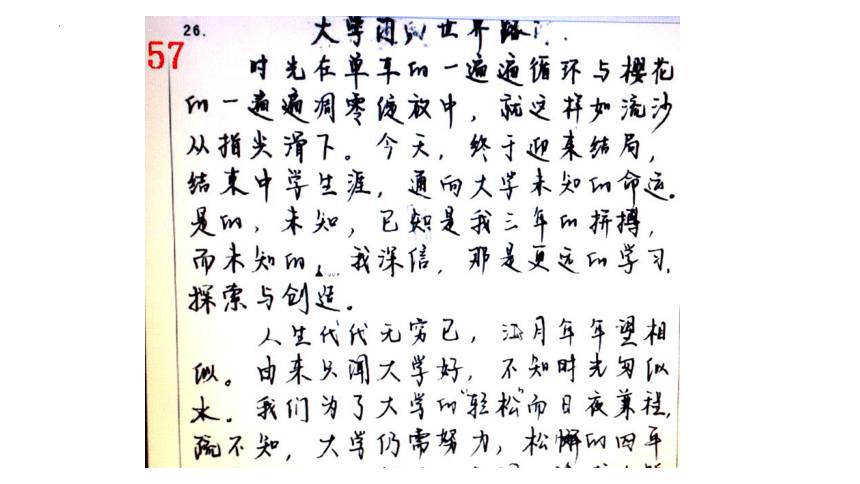 26.
大学 世界
57
时光在单车的一遍遍循环与樱花
的一遍遍凋零绽放中，就这样如流沙
从指尖滑下。今天，终于迎来结局，
结束中学生涯，通向大学未知的命运。
是的，未知，已知是我三年的拼搏，
而未知的，我深信，那是更远的学习，
探索与创造。
人生代代无穷已，江月年年望相
似。由来只闻大学好，不知时光匆似
水。我们为了大学的“轻松”而日夜兼程，
疏不知，大学仍需努力，松懈的四年